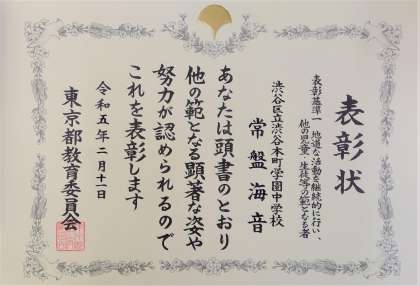 表彰状
表彰基準一 地道な活動を継続的に行い、
他の児童・生徒等の範となる者
渋谷区立渋谷本町学園中学校
常盤海音
あなたは頭書のとおり
他の範となる顕著な姿や
努力が認められるので
これを表彰します
令和五年二月十一日
東京都教育委員会